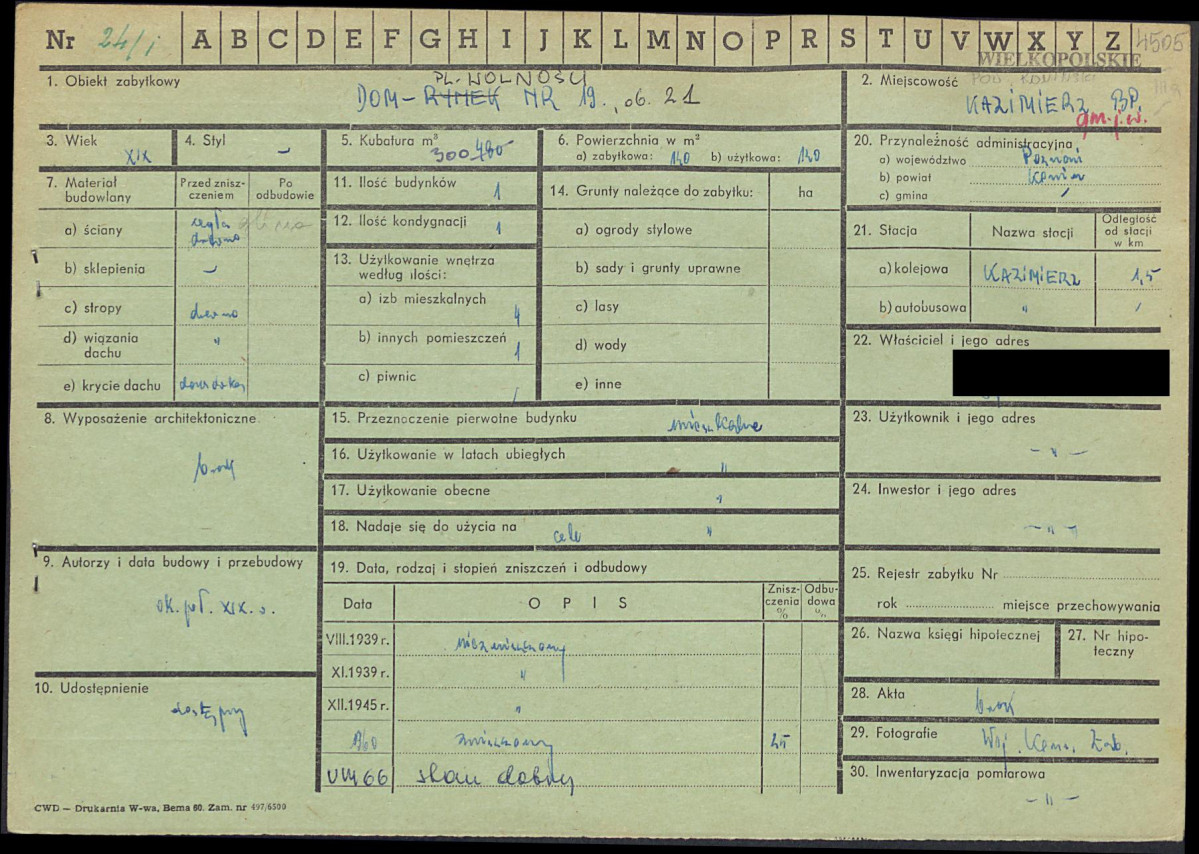 Nr 24/1 A B C D E F G H I J K L M N O P R S T U V W X Y Z 4505
WIELKOPOLSKIE
1. Obiekt zabytkowy
PL. WOLNOŚCI
DOM – RYNEK NR 19., ob. 21
2. Miejscowość
KAZIMIERZ BP.
gm. j. w.
3. Wiek
XIX
4. Styl
–
5. Kubatura m³
300 480
6. Powierzchnia w m²
a) zabytkowa: 140 b) użytkowa: 140
20. Przynależność administracyjna
a) województwo Poznań
b) powiat Konin
c) gmina /
7. Materiał budowlany
Przed zniszczeniem
Po odbudowie
a) ściany cegła
drewno
b) sklepienia –
c) stropy drewno
d) wiązania dachu "
e) krycie dachu
11. Ilość budynków 1
12. Ilość kondygnacji 1
13. Użytkowanie wnętrza według ilości:
a) izb mieszkalnych 4
b) innych pomieszczeń 1
c) piwnic /
14. Grunty należące do zabytku: ha
a) ogrody stylowe
b) sady i grunty uprawne
c) lasy
d) wody
e) inne
21. Stacja Nazwa stacji Odległość od stacji w km
a) kolejowa KAZIMIERZ 1,5
b) autobusowa " /
22. Właściciel i jego adres
8. Wyposażenie architektoniczne
brak
15. Przeznaczenie pierwotne budynku mieszkalne
16. Użytkowanie w latach ubiegłych "
17. Użytkowanie obecne "
18. Nadaje się do użycia na cele "
23. Użytkownik i jego adres
– " –
24. Inwestor i jego adres
– " –
9. Autorzy i data budowy i przebudowy
ok. poł. XIX w.
19. Data, rodzaj i stopień zniszczeń i odbudowy
Data OPIS Zniszczenia % Odbudowa %
VIII.1939 r. niezniszczony
XI.1939 r. "
XII.1945 r. "
1960 zniszczony 25
VIII 66 stan dobry
25. Rejestr zabytku Nr
rok miejsce przechowywania
26. Nazwa księgi hipotecznej
27. Nr hipoteczny
10. Udostępnienie
dostępny
28. Akta brak
29. Fotografie Woj. Kons. Zab.
30. Inwentaryzacja pomiarowa
– " –
CWD – Drukarnia W-wa, Bema 60. Zam. nr 497/6500